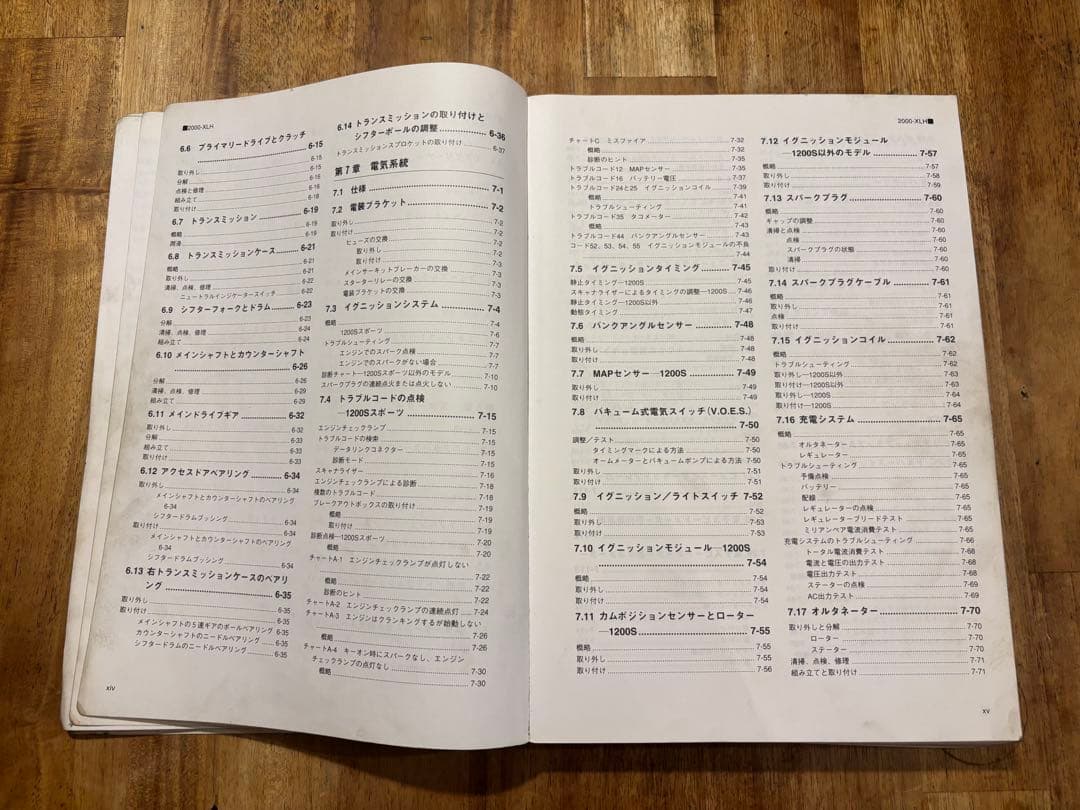 ■2000-XLH
6.6 プライマリードライブとクラッチ
6-15
6-15
取り外し 6-15
分解 6-15
点検と修理 6-16
組み立て 6-18
取り付け
6.7 トランスミッション 6-19
概略 6-19
潤滑 6-19
6.8 トランスミッションケース 6-21
概略 6-21
取り外し 6-21
清掃、点検、修理 6-22
ニュートラルインジケータースイッチ 6-22
6.9 シフターフォークとドラム 6-23
分解 6-23
清掃、点検、修理 6-24
組み立て 6-24
6.10 メインシャフトとカウンターシャフト
6-26
分解 6-26
清掃、点検、修理 6-29
組み立て 6-29
6.11 メインドライブギア 6-32
取り外し 6-32
分解 6-33
組み立て 6-33
取り付け 6-33
6.12 アクセスドアベアリング 6-34
取り外し 6-34
メインシャフトとカウンターシャフトのベアリング
6-34
シフタードラムブッシング 6-34
取り付け 6-34
メインシャフトとカウンターシャフトのベアリング
6-34
シフタードラムブッシング 6-34
6.13 右トランスミッションケースのベアリ
ング 6-35
取り外し 6-35
取り付け 6-35
メインシャフトの5速ギアのボールベアリング 6-35
カウンターシャフトのニードルベアリング 6-35
シフタードラムのニードルベアリング 6-35
xiv
6.14 トランスミッションの取り付けと
シフターポールの調整 6-36
トランスミッションスプロケットの取り付け 6-37
第7章 電気系統
7.1 仕様 7-1
7.2 電装ブラケット 7-2
取り外し 7-2
取り付け 7-2
ヒューズの交換 7-2
取り外し 7-2
取り付け 7-3
メインサーキットブレーカーの交換 7-3
スターターリレーの交換 7-3
電装ブラケットの交換 7-3
7.3 イグニッションシステム 7-4
概略 7-4
1200Sスポーツ 7-6
トラブルシューティング 7-7
エンジンでのスパーク点検 7-7
エンジンでのスパークがない場合 7-7
診断チャート―1200Sスポーツ以外のモデル 7-10
スパークプラグの連続点火または点火しない 7-10
7.4 トラブルコードの点検
―1200Sスポーツ 7-15
エンジンチェックランプ 7-15
トラブルコードの検索 7-15
データリンクコネクター 7-15
診断モード 7-15
スキャナライザー 7-16
エンジンチェックランプによる診断 7-18
複数のトラブルコード 7-18
ブレークアウトボックスの取り付け 7-19
概略 7-19
取り付け 7-19
診断点検―1200Sスポーツ 7-20
概略 7-20
チャートA-1 エンジンチェックランプが点灯しない
7-22
概略 7-22
診断のヒント 7-22
チャートA-2 エンジンチェックランプの連続点灯 7-24
チャートA-3 エンジンはクランキングするが始動しない
7-26
概略 7-26
チャートA-4 キーオン時にスパークなし、エンジン
チェックランプの点灯なし 7-30
概略 7-30
2000-XLH■
チャートC ミスファイア 7-32
概略 7-32
診断のヒント 7-35
トラブルコード12 MAPセンサー 7-35
トラブルコード16 バッテリー電圧 7-37
トラブルコード24と25 イグニッションコイル 7-39
概略 7-41
トラブルシューティング 7-41
トラブルコード35 タコメーター 7-42
概略 7-43
トラブルコード44 バンクアングルセンサー 7-43
コード52、53、54、55 イグニッションモジュールの不良
7-44
7.5 イグニッションタイミング 7-45
静止タイミング―1200S 7-45
スキャナライザーによるタイミングの調整―1200S 7-46
静止タイミング―1200S以外 7-46
動態タイミング 7-47
7.6 バンクアングルセンサー 7-48
概略 7-48
取り外し 7-48
取り付け 7-48
7.7 MAPセンサー―1200S 7-49
取り外し 7-49
取り付け 7-49
7.8 バキューム式電気スイッチ(V.O.E.S.)
7-50
調整/テスト 7-50
タイミングマークによる方法 7-50
オームメーターとバキュームポンプによる方法 7-50
取り外し 7-51
取り付け 7-51
7.9 イグニッション/ライトスイッチ 7-52
概略 7-52
取り外し 7-53
取り付け 7-53
7.10 イグニッションモジュール―1200S
7-54
概略 7-54
取り外し 7-54
取り付け 7-54
7.11 カムポジションセンサーとローター
―1200S 7-55
概略 7-55
取り外し 7-55
取り付け 7-56
7.12 イグニッションモジュール
―1200S以外のモデル 7-57
概略 7-57
取り外し 7-58
取り付け 7-59
7.13 スパークプラグ 7-60
概略 7-60
ギャップの調整 7-60
清掃と点検 7-60
点検 7-60
スパークプラグの状態 7-60
清掃 7-60
取り付け 7-60
7.14 スパークプラグケーブル 7-61
概略 7-61
取り外し 7-61
点検 7-61
取り付け 7-61
7.15 イグニッションコイル 7-62
トラブルシューティング 7-62
取り外し―1200S以外 7-63
取り付け―1200S以外 7-63
取り外し―1200S 7-64
取り付け―1200S 7-64
7.16 充電システム 7-65
概略 7-65
オルタネーター 7-65
レギュレーター 7-65
トラブルシューティング 7-65
予備点検 7-65
バッテリー 7-65
配線 7-65
レギュレーターの点検 7-65
レギュレーターブリードテスト 7-65
ミリアンペア電流消費テスト 7-65
充電システムのトラブルシューティング 7-66
トータル電流消費テスト 7-68
電流と電圧の出力テスト 7-68
電圧出力テスト 7-68
ステーターの点検 7-69
AC出力テスト 7-69
7.17 オルタネーター 7-70
取り外しと分解 7-70
ローター 7-70
ステーター 7-70
清掃、点検、修理 7-71
組み立てと取り付け 7-71
xv